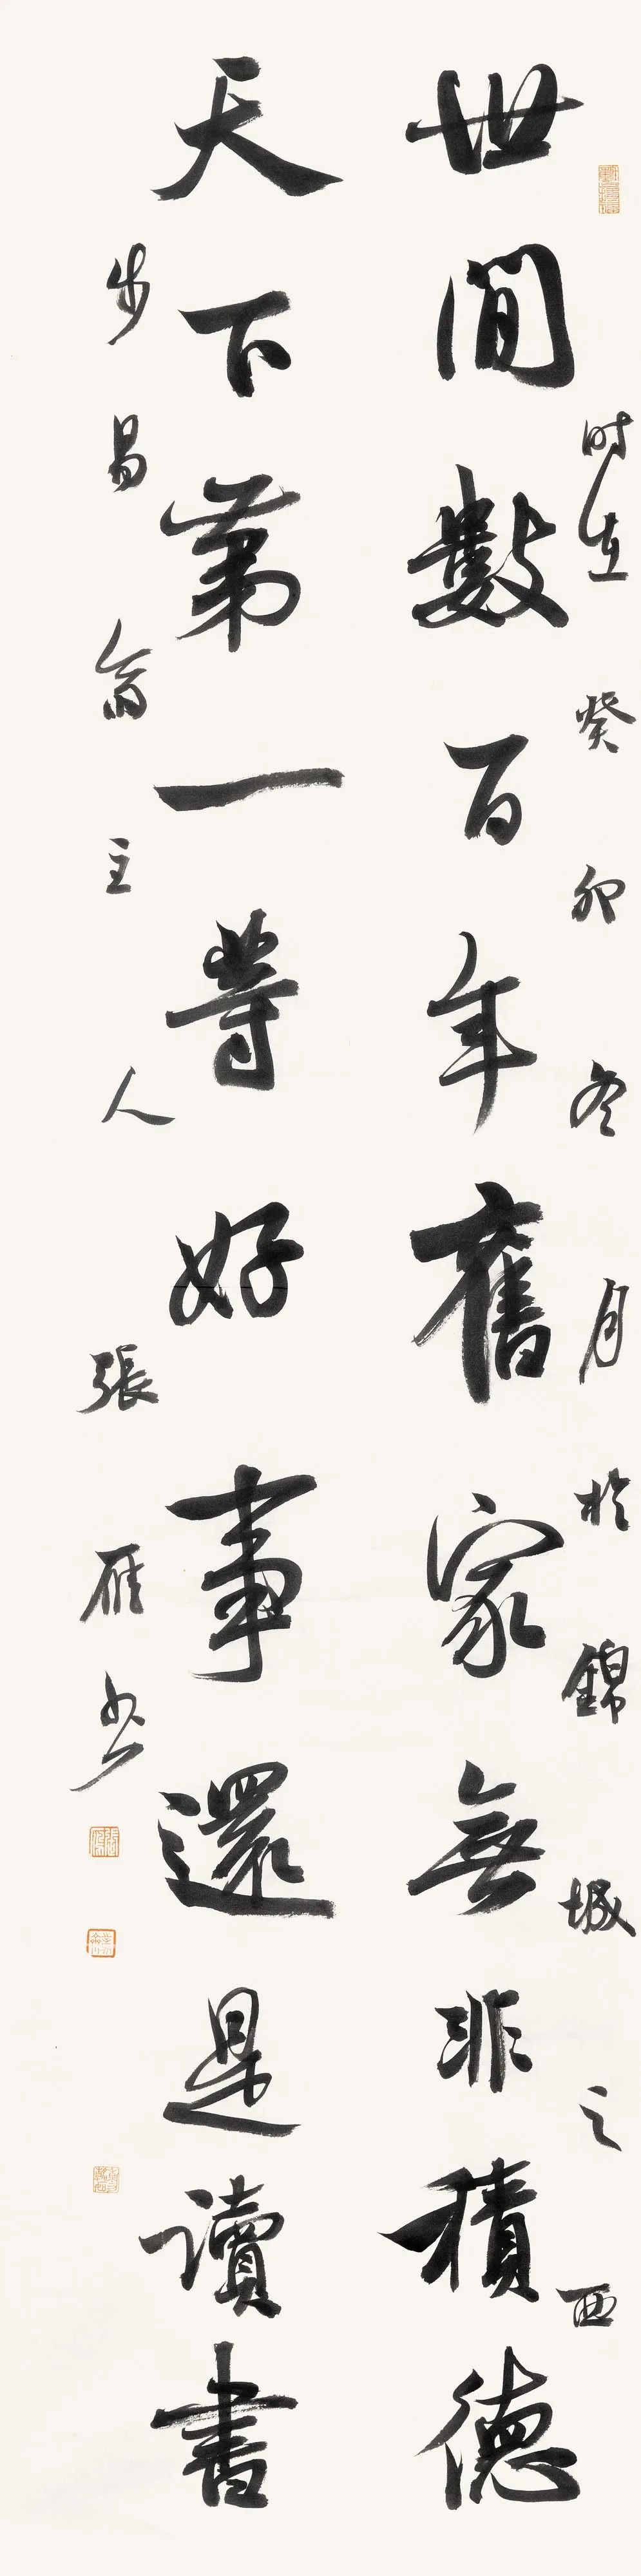 时在癸卯冬月於錦城之西
世間數百年舊家無非積德
天下第一等好事還是讀書
步易斋主人張雁书